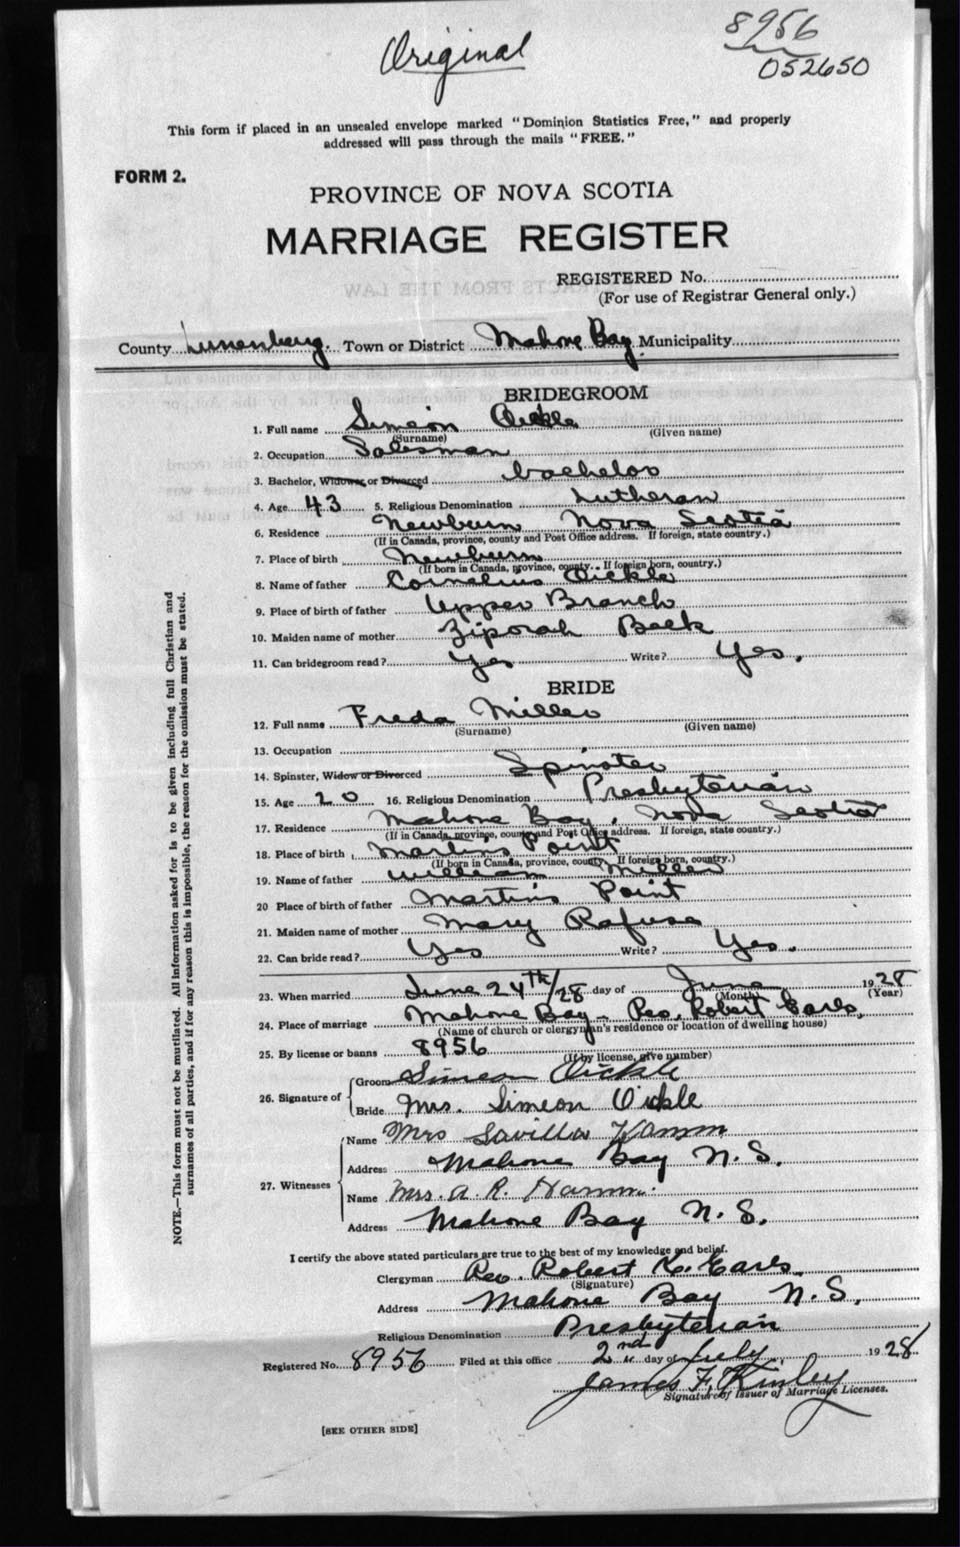 Original
8956
052650
This form if placed in an unsealed envelope marked "Dominion Statistics Free," and properly
addressed will pass through the mails "FREE."
FORM 2.
PROVINCE OF NOVA SCOTIA
MARRIAGE REGISTER
REGISTERED No.
(For use of Registrar General only.)
County Lunenburg. Town or District Mahone Bay Municipality
BRIDEGROOM
1. Full name Simeon Oickle
(Surname) (Given name)
2. Occupation Salesman
3. Bachelor, Widower or Divorced bachelor
4. Age 43 5. Religious Denomination Lutheran
6. Residence Newburn Nova Scotia
(If in Canada, province, county and Post Office address. If foreign, state country.)
7. Place of birth Newburn
(If born in Canada, province, county. If foreign born, country.)
8. Name of father Cornelius Oickle
9. Place of birth of father Upper Branch
10. Maiden name of mother Ziporah Beck
11. Can bridegroom read? Yes Write? Yes.
BRIDE
12. Full name Freda Miller
(Surname) (Given name)
13. Occupation
14. Spinster, Widow or Divorced Spinster
15. Age 20 16. Religious Denomination Presbyterian
17. Residence Mahone Bay, Nova Scotia
(If in Canada, province, county and Post Office address. If foreign, state country.)
18. Place of birth Martins Point
(If born in Canada, province, county If foreign born, country.)
19. Name of father William Miller
20 Place of birth of father Martins Point
21. Maiden name of mother Mary Rafuse
22. Can bride read? Yes Write? Yes.
23. When married June 24th/28 day of June 1928
(Month) (Year)
24. Place of marriage Mahone Bay - Rev. Robert Earls,
(Name of church or clergyman's residence or location of dwelling house)
25. By license or banns 8956
(If by license, give number)
26. Signature of Groom Simeon Oickle
Bride Mrs. Simeon Oickle
27. Witnesses Name Mrs Savilla Hamm
Address Mahone Bay N.S.
Name Mrs. A. R. Hamm.
Address Mahone Bay N.S.
I certify the above stated particulars are true to the best of my knowledge and belief.
Clergyman Rev. Robert Earls
(Signature)
Address Mahone Bay N.S.
Religious Denomination Presbyterian
Registered No. 8956 Filed at this office 2nd day of July, 1928.
James F. Kinley
Signature of Issuer of Marriage Licenses.
[SEE OTHER SIDE]
NOTE.—This form must not be mutilated. All information asked for is to be given including full Christian and
surnames of all parties, and if for any reason this is impossible, the reason for the omission must be stated.